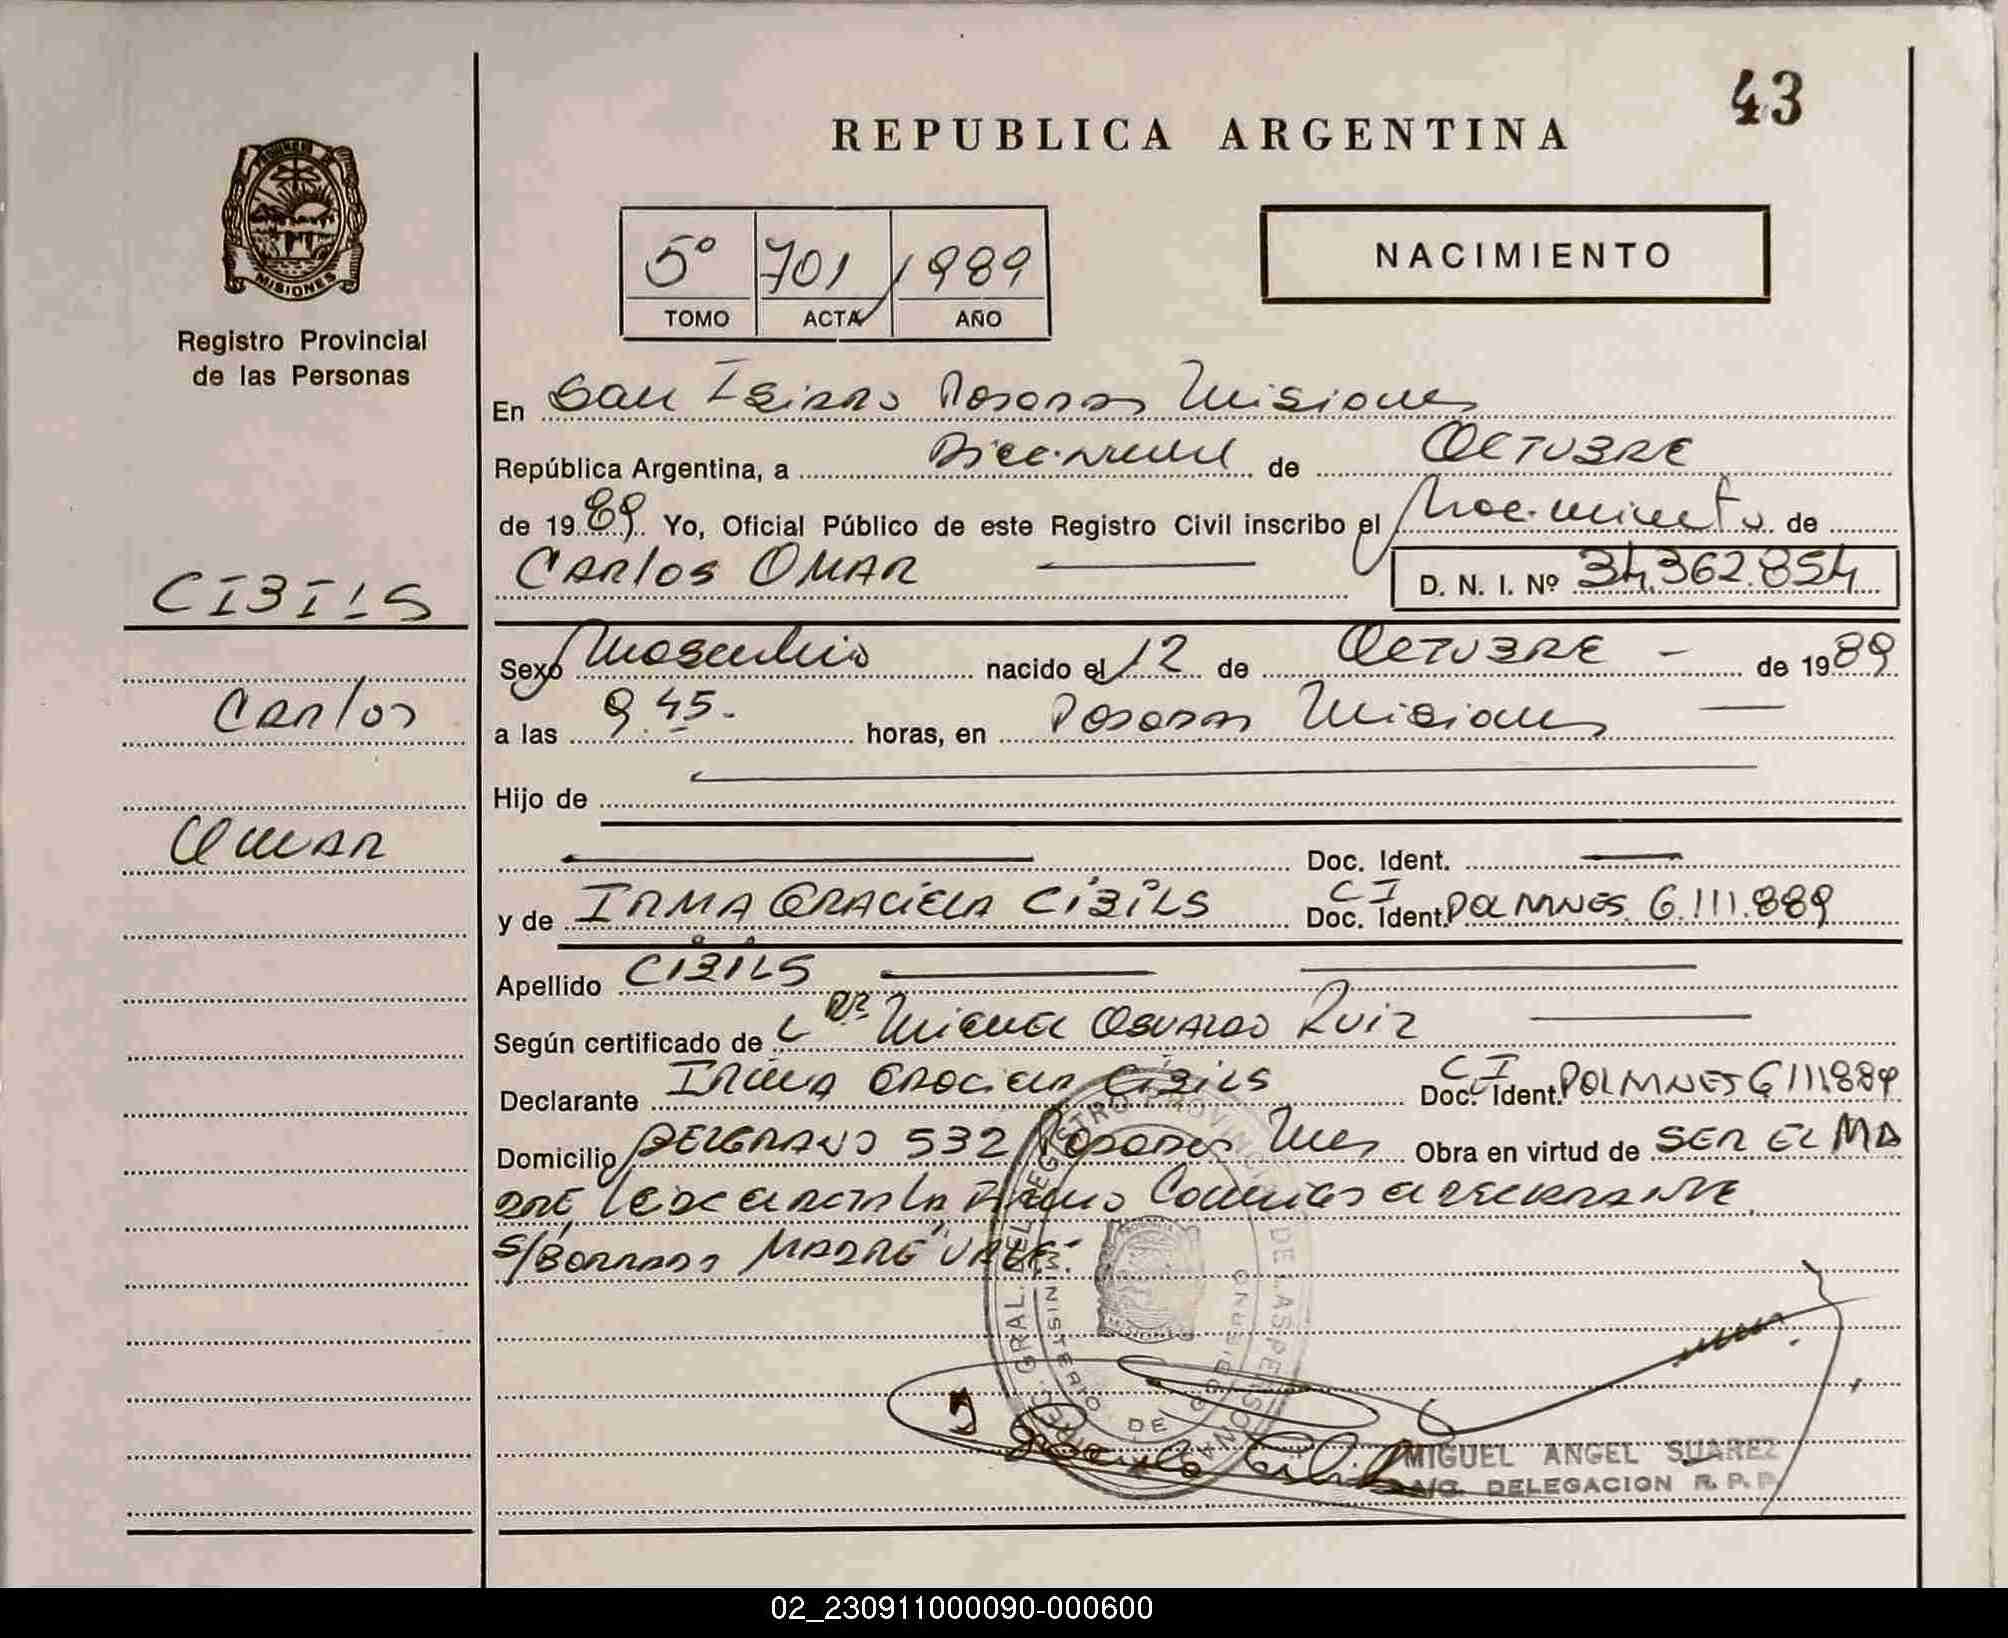 43
REPUBLICA ARGENTINA
MISIONES
Registro Provincial
de las Personas
5º 701 1989
TOMO ACTA AÑO
NACIMIENTO
En San Isidro Posadas Misiones
República Argentina, a Diecinueve de OCTUBRE
de 1989. Yo, Oficial Público de este Registro Civil inscribo el Nacimiento de
CARLOS OMAR
D. N. I. Nº 34.362.854
CIBILS
Carlos
OMAR
Sexo Masculino nacido el 12 de OCTUBRE - de 1989
a las 9.45.- horas, en Posadas Misiones
Hijo de
Doc. Ident.
y de IRMA GRACIELA CIBILS Doc. Ident. CI POL MNES 6.111.889
Apellido CIBILS
Según certificado de Miguel Osvaldo Ruiz
Declarante IRMA GRACIELA CIBILS Doc. Ident. CI POL MNES 6111.889
Domicilio BELGRANO 532 Posadas Mnes Obra en virtud de SER EL MA
DRE Leida el acta la Firmo Conmigo el DECLARANTE
S/BORRADO MADRE VALE.
DE LAS PERSONAS
MINISTERIO DE GOBIERNO
MIGUEL ANGEL SUAREZ
DELEGACION R. P. P.
02_230911000090-000600